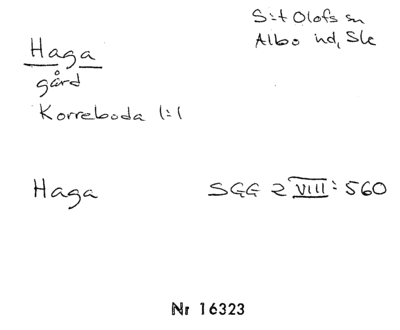 S:t Olofs sn
Albo hd, Sk
Haga
gård
Korreboda 1:1
Haga
SGG 2 VIII: 560
Nr 16323